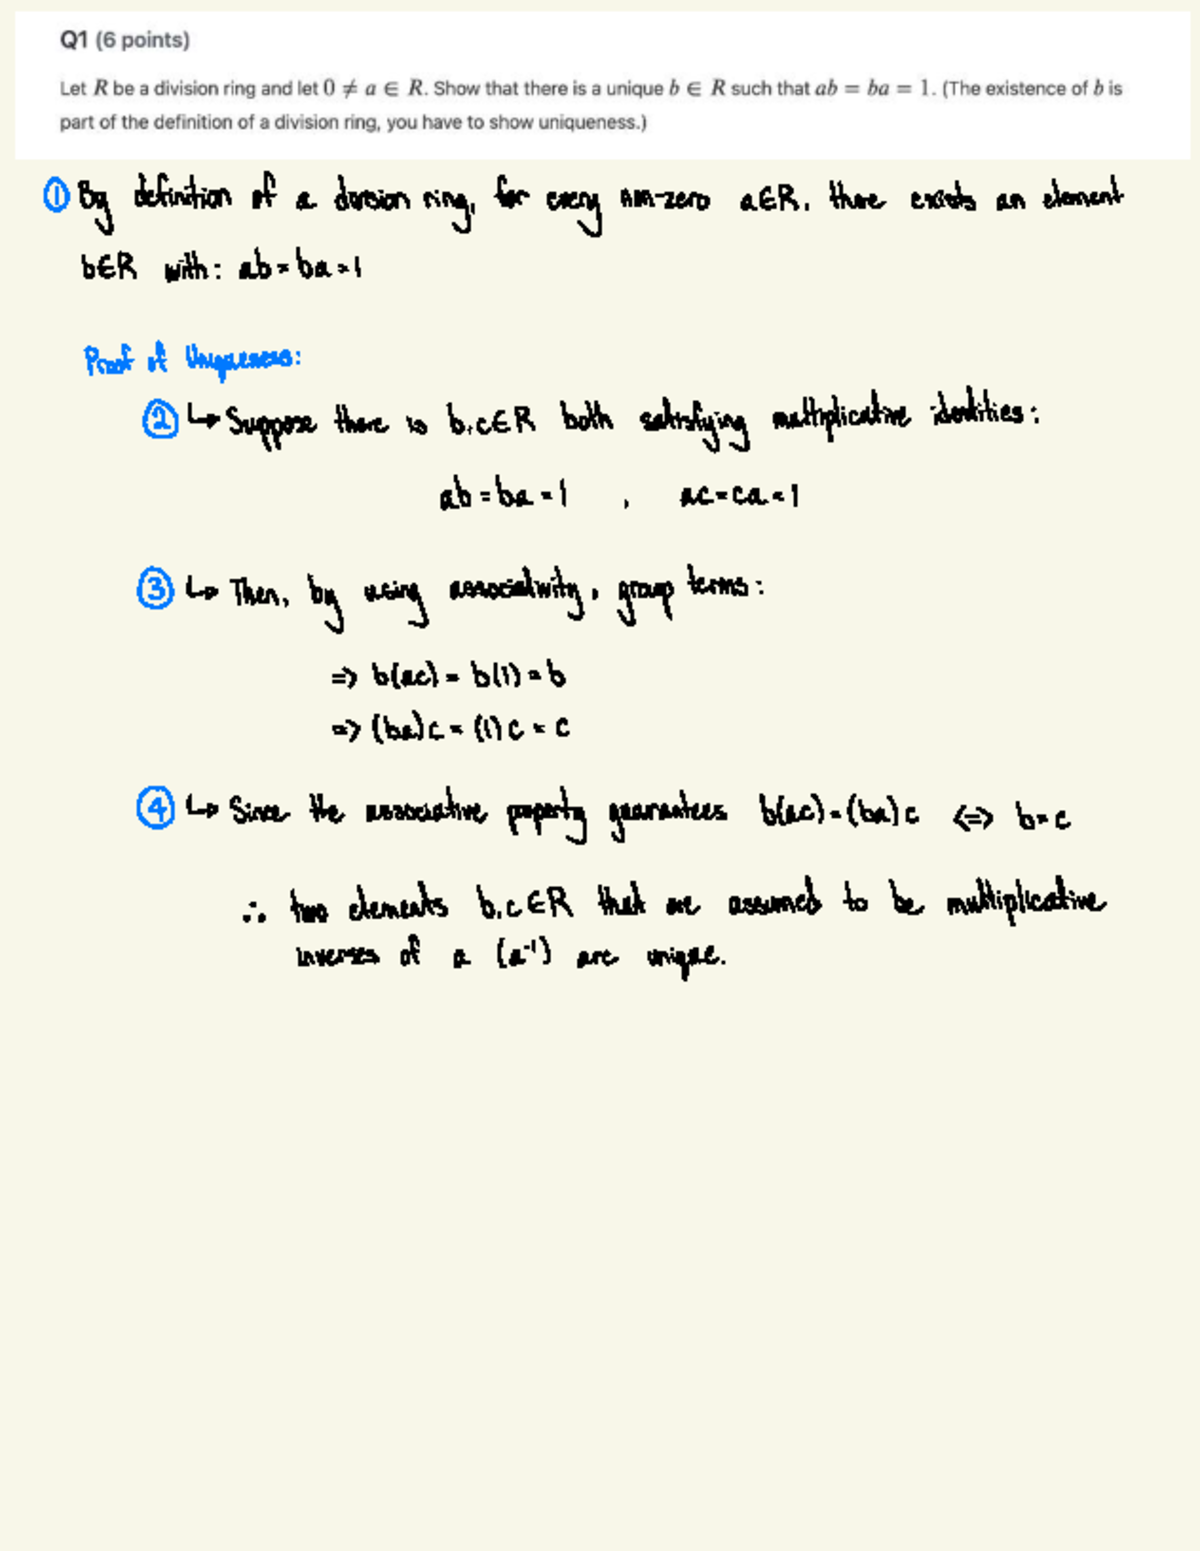 Q1 (6 points)
Let R be a division ring and let 0 ≠ a ∈ R. Show that there is a unique b ∈ R such that ab = ba = 1. (The existence of b is
part of the definition of a division ring, you have to show uniqueness.)
① By definition of a division ring, for every non-zero a∈R, there exists an element
b∈R with: ab=ba=1
Proof of Uniqueness:
② ↳ Suppose there is b,c∈R both satisfying multiplicative identities:
ab=ba=1 , ac=ca=1
③ ↳ Then, by using associativity, group terms:
⇒ b(ac) = b(1) = b
⇒ (ba)c = (1)c = c
④ ↳ Since the associative property guarantees b(ac)=(ba)c ⇔ b=c
∴ two elements b,c∈R that are assumed to be multiplicative
inverses of a (a⁻¹) are unique.